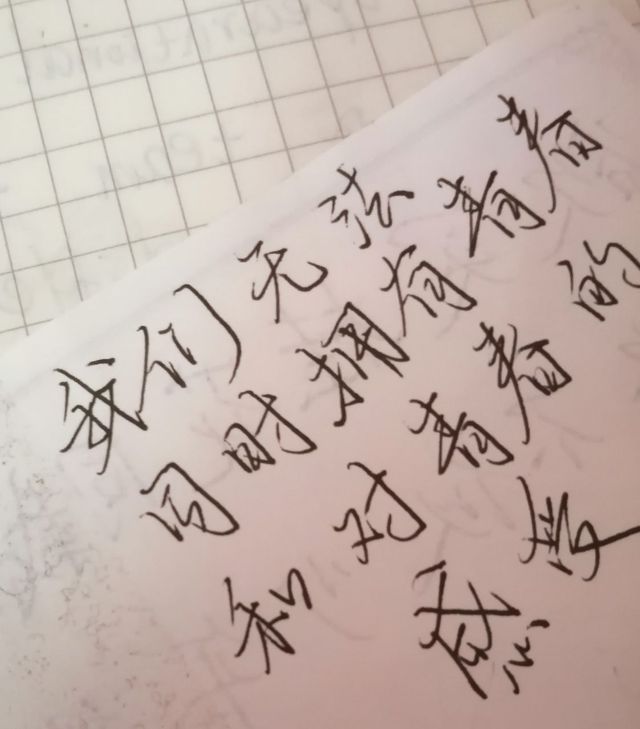 我们无法
同时拥有青春
和对青春的
感受